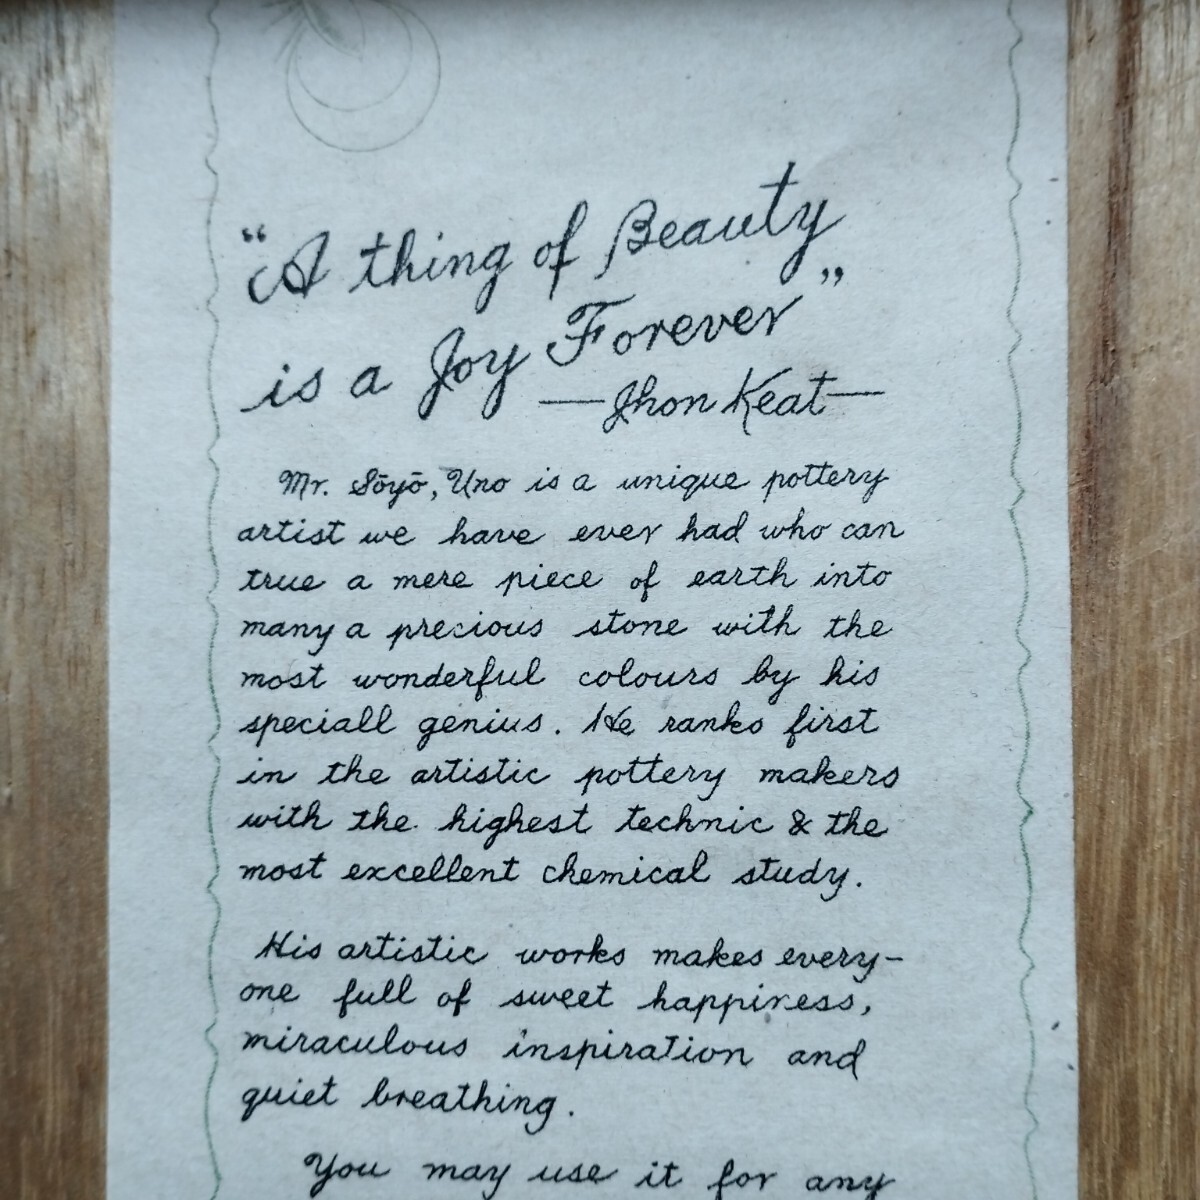 “A thing of Beauty
is a Joy Forever”
—Jhon Keat—
Mr. Sōyō, Uno is a unique pottery
artist we have ever had who can
true a mere piece of earth into
many a precious stone with the
most wonderful colours by his
speciall genius. He ranks first
in the artistic pottery makers
with the highest technic & the
most excellent chemical study.
His artistic works makes every-
one full of sweet happiness,
miraculous inspiration and
quiet breathing.
You may use it for any